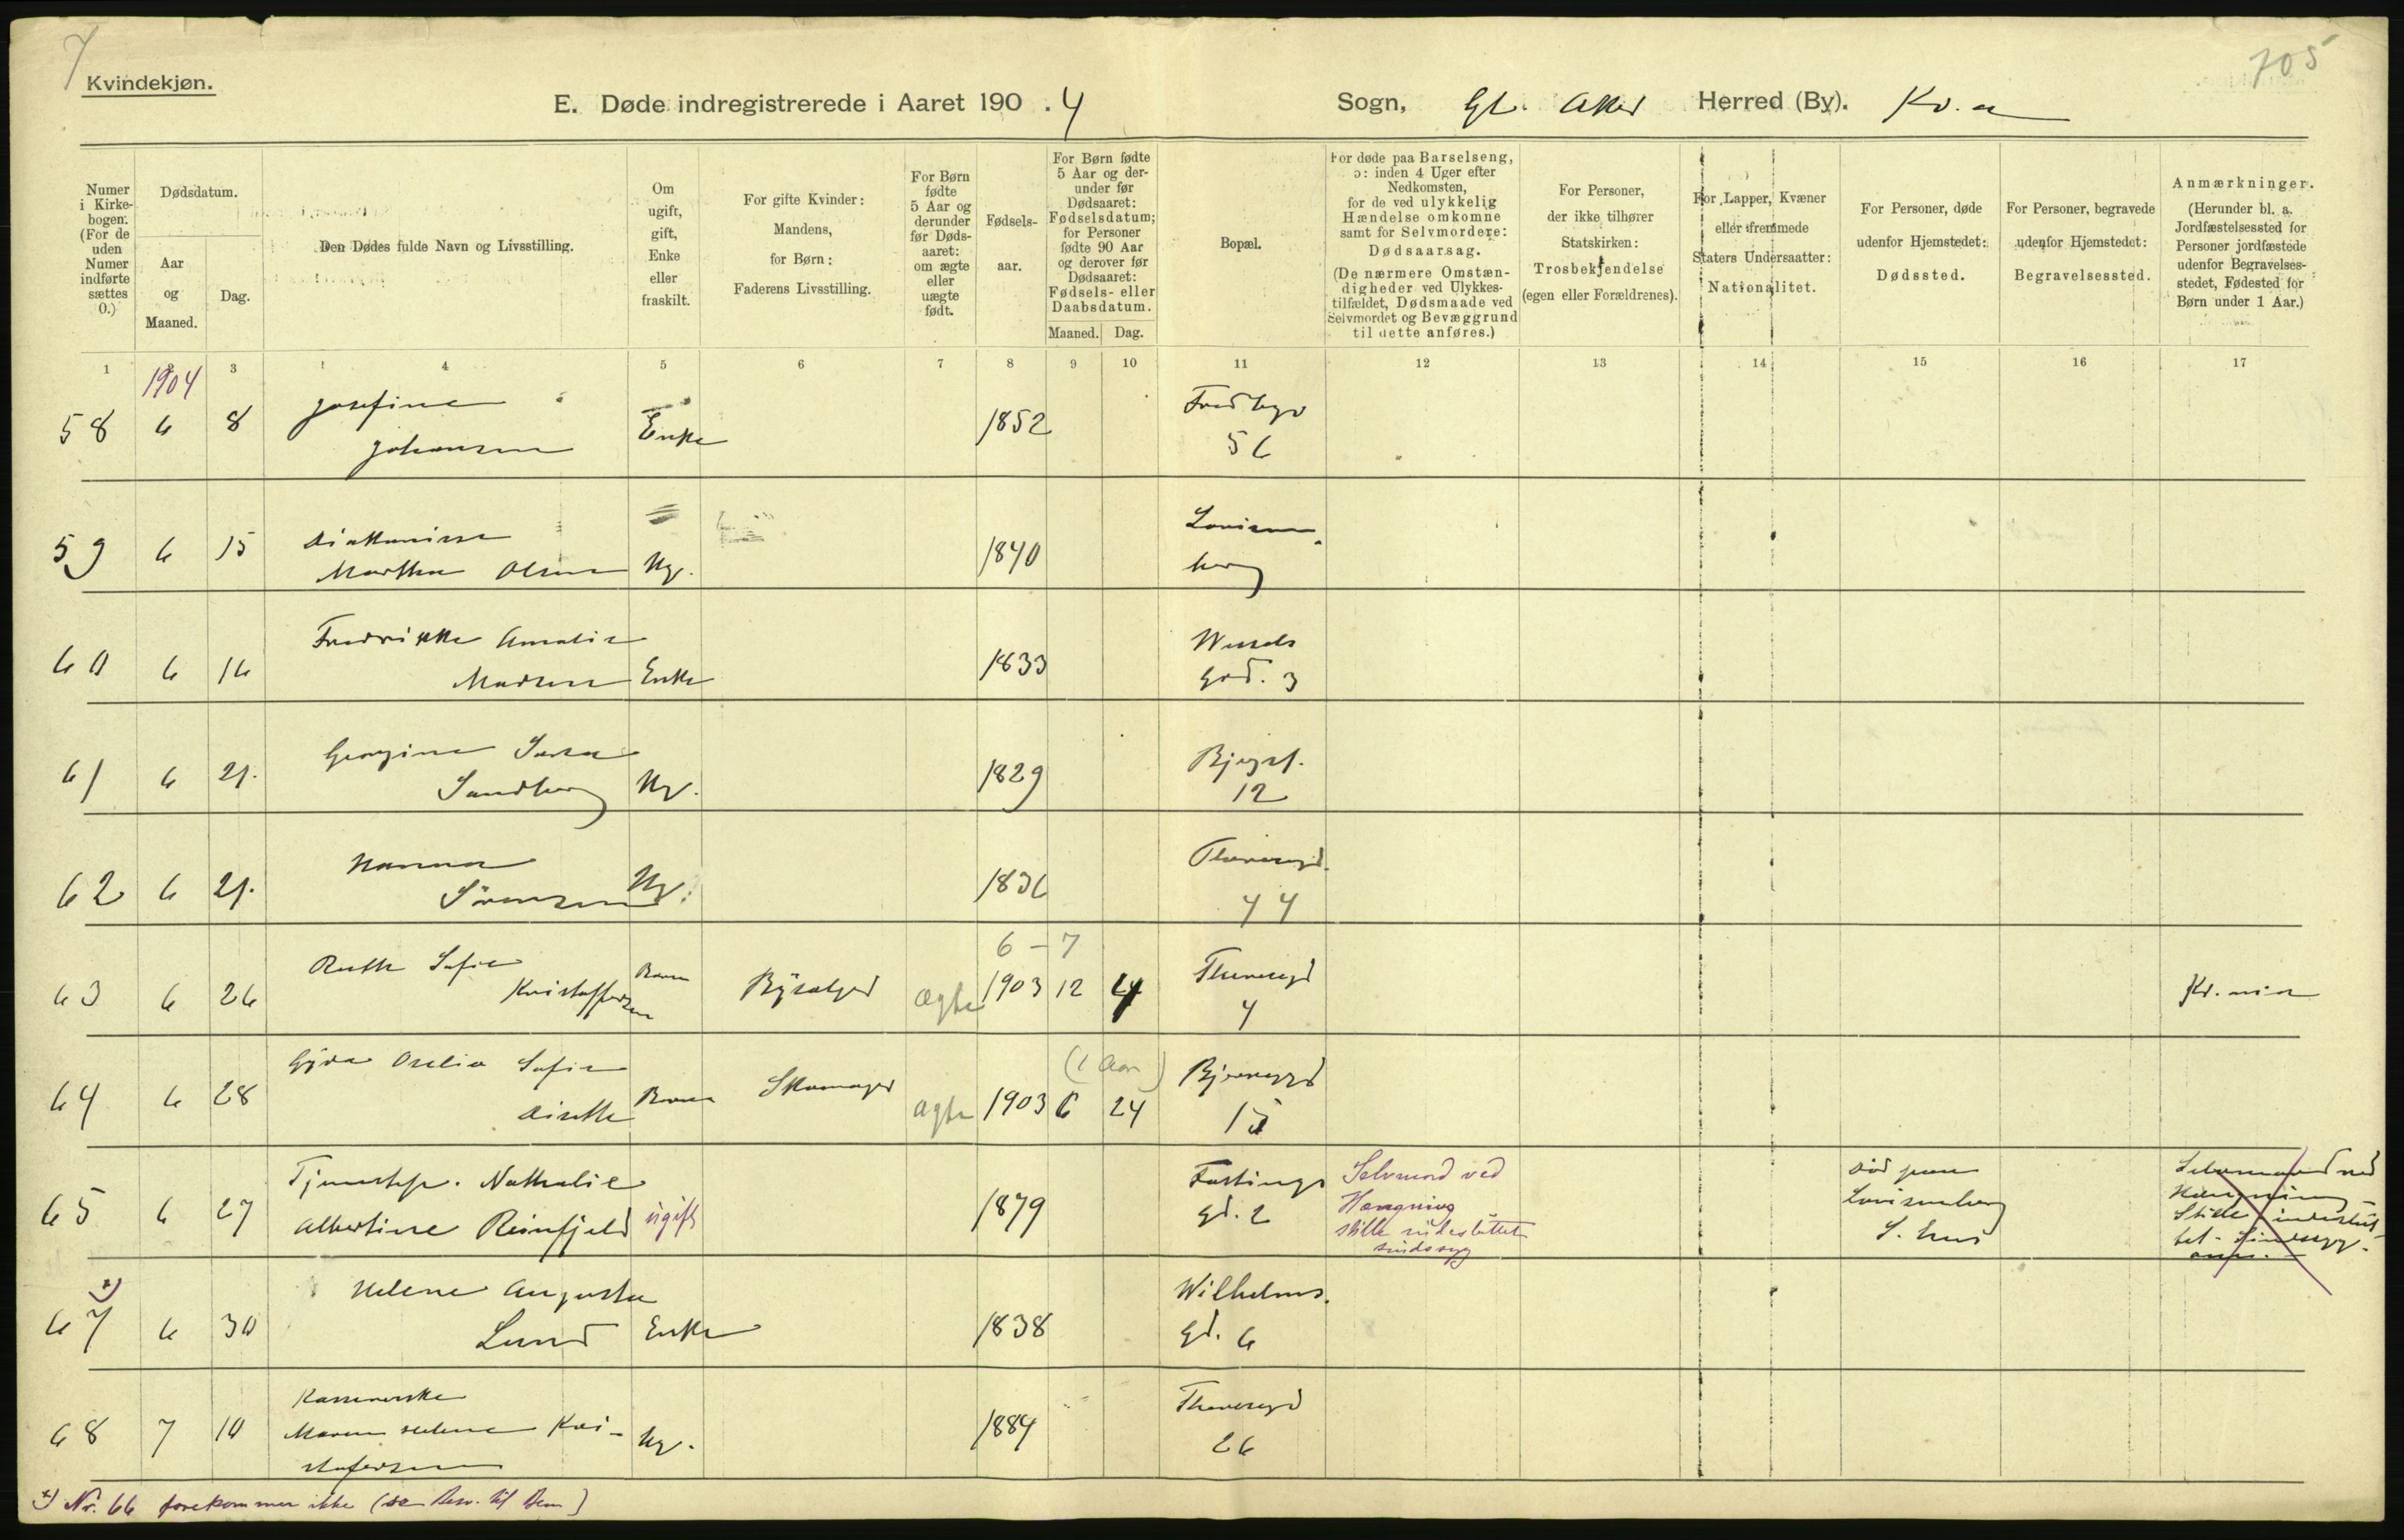 7
705
Kvindekjøn.
E. Døde indregistrerede i Aaret 190 . 4 Sogn, Gl. Aker Herred (By). Kr. a
Numer
i Kirke-
bogen.
(For de
uden
Numer
indførte
sættes
0.)
Dødsdatum.
Aar
og
Maaned.
Dag.
Den Dødes fulde Navn og Livsstilling.
Om
ugift,
gift,
Enke
eller
fraskilt.
For gifte Kvinder:
Mandens,
for Børn:
Faderens Livsstilling.
For Børn
fødte
5 Aar og
derunder
før Døds-
aaret:
om ægte
eller
uægte
født.
Fødsels-
aar.
For Børn fødte
5 Aar og der-
under før
Dødsaaret:
Fødselsdatum;
for Personer
fødte 90 Aar
og derover før
Dødsaaret:
Fødsels- eller
Daabsdatum.
Maaned. Dag.
Bopæl.
For døde paa Barselseng,
ɔ: inden 4 Uger efter
Nedkomsten,
for de ved ulykkelig
Hændelse omkomne
samt for Selvmordere:
Dødsaarsag.
(De nærmere Omstæn-
digheder ved Ulykkes-
tilfældet, Dødsmaade ved
Selvmordet og Bevæggrund
til dette anføres.)
For Personer,
der ikke tilhører
Statskirken:
Trosbekjendelse
(egen eller Forældrenes).
For Lapper, Kvæner
eller fremmede
Staters Undersaatter:
Nationalitet.
For Personer, døde
udenfor Hjemstedet:
Dødssted.
For Personer, begravede
udenfor Hjemstedet:
Begravelsessted.
Anmærkninger.
(Herunder bl. a.
Jordfæstelsessted for
Personer jordfæstede
udenfor Begravelses-
stedet, Fødested for
Børn under 1 Aar.)
1 2 3 4 5 6 7 8 9 10 11 12 13 14 15 16 17
1904
Josefine
58 6 8 Johansen Enke 1852
56
Diakonisse
59 6 15 Martha Olsen Ug. 1840
Lovisen
berg
Fredrikke Amalie
60 6 16 Madsen Enke 1833
Wessels
Gad. 3
Georgine
61 6 21. Sandberg Ug. 1829
12
Hanna
62 6 21. Sörensen Ug. 1836
Theresegd.
44
6 - 7
Ruth Sofie
63 6 26 Kristoffersen Barn ægte 1903 12 4
Theresegd
4
Kr. nia
(1 Aar)
Gyda Sofie
64 6 28 Barn Skomager ægte 1903 6 24
15
Tjenestep. Nathalie
65 6 27 Albertine Reinfjeld ugift 1879
Fastings
gd. 2
Selvmord ved
Hængning
stille indesluttet
sindssyg
död paa
Lovisenberg
S. hus
Selvmord ved
Hængning
Stille indeslut-
tet. Sindssyg.
*)
Helene Augusta
67 6 30 Lund Enke 1838
Wilhelms.
gd. 6
Kassererske
68 7 10 Maren Helene Kri-
stofersen Ug. 1884
Theresegd
26
*) Nr. 66 forekommer ikke (se Besv. til Bem)